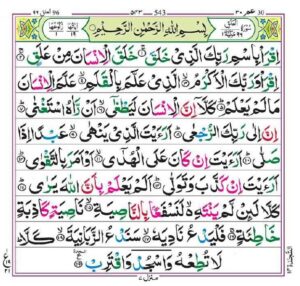 بِسْمِ اللهِ الرَّحْمٰنِ الرَّحِيْمِ
اِقْرَاْ بِاسْمِ رَبِّكَ الَّذِيْ خَلَقَ ۚ خَلَقَ الْاِنْسَانَ مِنْ عَلَقٍ ۚ
اِقْرَاْ وَرَبُّكَ الْاَكْرَمُ ۙ الَّذِيْ عَلَّمَ بِالْقَلَمِ ۙ عَلَّمَ الْاِنْسَانَ
مَا لَمْ يَعْلَمْ ؕ كَلَّاۤ اِنَّ الْاِنْسَانَ لَيَطْغٰۤى ۙ اَنْ رَّاٰهُ اسْتَغْنٰى ؕ
اِنَّ اِلٰى رَبِّكَ الرُّجْعٰى ؕ اَرَءَيْتَ الَّذِيْ يَنْهٰى ۙ عَبْدًا اِذَا
صَلّٰى ؕ اَرَءَيْتَ اِنْ كَانَ عَلَى الْهُدٰۤى ۙ اَوْ اَمَرَ بِالتَّقْوٰى ؕ
اَرَءَيْتَ اِنْ كَذَّبَ وَتَوَلّٰى ؕ اَلَمْ يَعْلَمْ بِاَنَّ اللهَ يَرٰى ؕ
كَلَّا لَئِنْ لَّمْ يَنْتَهِ ۙ لَنَسْفَعًۢا بِالنَّاصِيَةِ ۙ نَاصِيَةٍ كَاذِبَةٍ
خَاطِئَةٍ ۚ فَلْيَدْعُ نَادِيَهٗ ۙ سَنَدْعُ الزَّبَانِيَةَ ۙ كَلَّا ؕ
لَا تُطِعْهُ وَاسْجُدْ وَاقْتَرِبْ